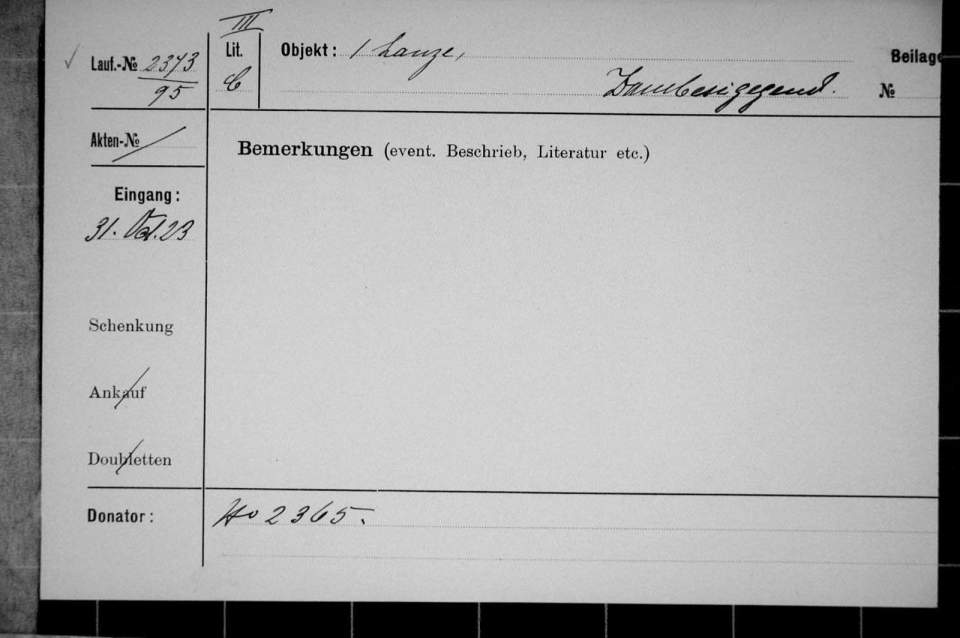 III
Lauf.-№ 2373
95
Lit.
C
Objekt: 1 Lanze,
Zambesigegend.
Beilage
№
Akten-№
Bemerkungen (event. Beschrieb, Literatur etc.)
Eingang:
31. Okt. 23
Schenkung
Ankauf
Doubletten
Donator: No 2365.